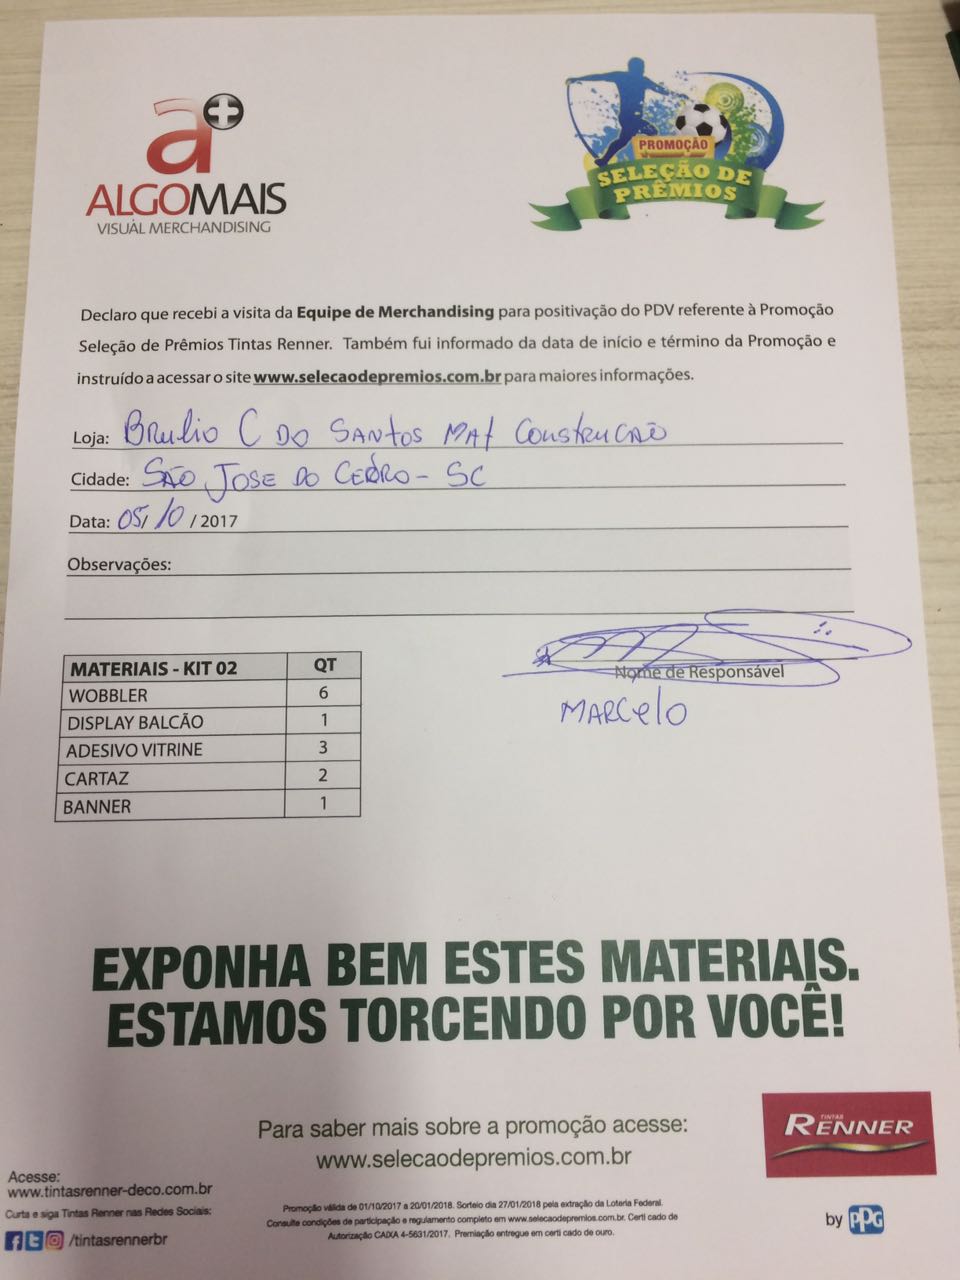 a+
ALGOMAIS
VISUAL MERCHANDISING
PROMOÇÃO
SELEÇÃO DE
PRÊMIOS
Declaro que recebi a visita da Equipe de Merchandising para positivação do PDV referente à Promoção
Seleção de Prêmios Tintas Renner. Também fui informado da data de início e término da Promoção e
instruído a acessar o site www.selecaodepremios.com.br para maiores informações.
Loja: Brulio C DO SANTOS MAT CONSTRUCÃO
Cidade: SÃO JOSE DO CEDRO - SC
Data: 05/10/2017
Observações:
MATERIAIS - KIT 02 QT
WOBBLER 6
DISPLAY BALCÃO 1
ADESIVO VITRINE 3
CARTAZ 2
BANNER 1
Nome de Responsável
MARCelO
EXPONHA BEM ESTES MATERIAIS.
ESTAMOS TORCENDO POR VOCÊ!
Para saber mais sobre a promoção acesse:
www.selecaodepremios.com.br
TINTAS
RENNER
Acesse:
www.tintasrenner-deco.com.br
Curta e siga Tintas Renner nas Redes Sociais:
/tintasrennerbr
Promoção válida de 01/10/2017 a 20/01/2018. Sorteio dia 27/01/2018 pela extração da Loteria Federal.
Consulte condições de participação e regulamento completo em www.selecaodepremios.com.br. Certi cado de
Autorização CAIXA 4-5631/2017. Premiação entregue em certi cado de ouro.
by PPG